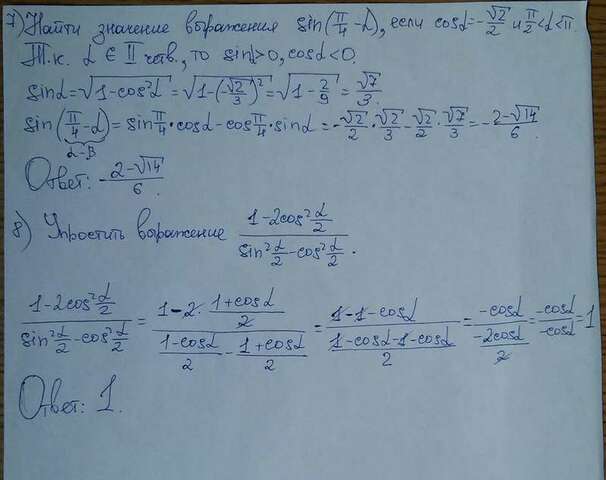 7) Найти значение выражения sin(π/4 - α), если cosα = -√2/2 и π/2 < α < π.
Т.к. α ∈ II четв., то sinα > 0, cosα < 0.
sinα = √(1 - cos²α) = √(1 - (-√2/3)²) = √(1 - 2/9) = √7/3.
sin(π/4 - α) = sin π/4 · cosα - cos π/4 · sinα = -√2/2 · √2/3 - √2/2 · √7/3 = -2-√14/6.
α-β
Ответ: -2-√14/6.
8) Упростить выражение (1 - 2cos² α/2)/(sin² α/2 - cos² α/2).
(1 - 2cos² α/2)/(sin² α/2 - cos² α/2) = (1 - 2 · (1 + cosα)/2)/((1 - cosα)/2 - (1 + cosα)/2) = (1 - 1 - cosα)/((1 - cosα - 1 - cosα)/2) = -cosα/(-2cosα/2) = -cosα/-cosα = 1
Ответ: 1.